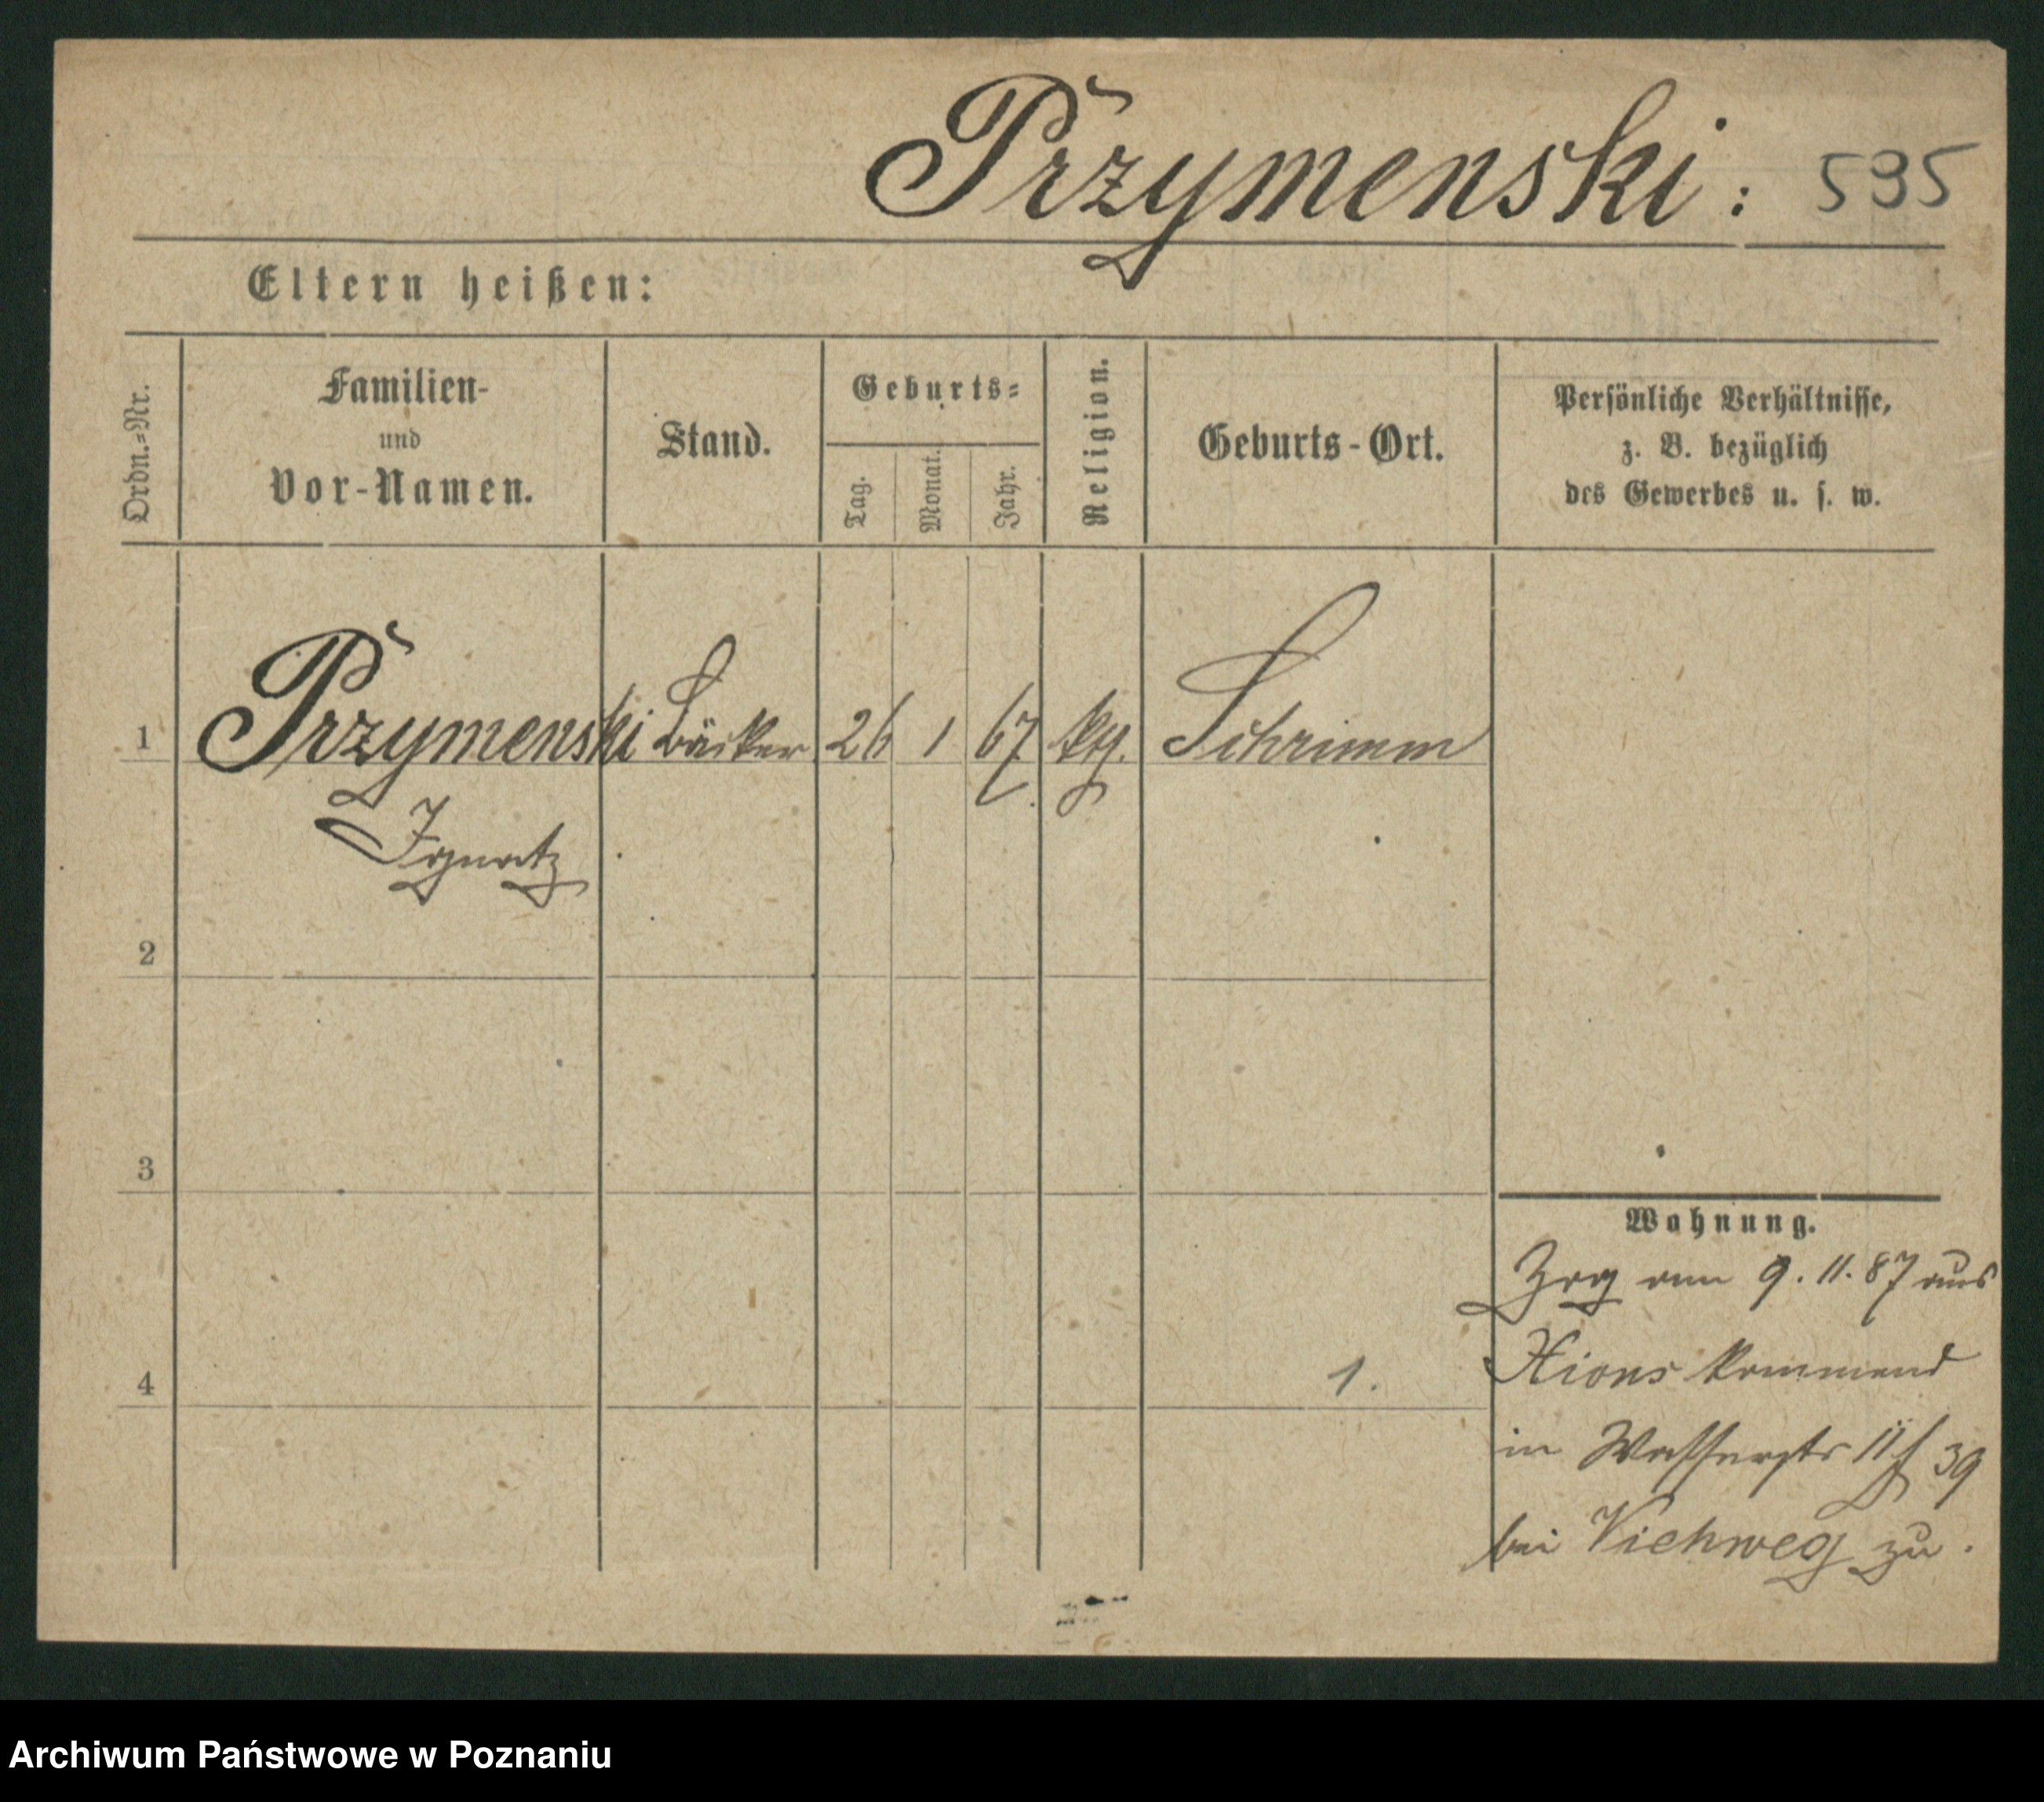 Przymenski: 595
Eltern heißen:
Ordn.=Nr.
Familien-
und
Vor-Namen.
Stand.
Geburts=
Tag.
Monat.
Jahr.
Religion.
Geburts-Ort.
Persönliche Verhältnisse,
z. B. bezüglich
des Gewerbes u. s. w.
1 Przymenski Bäcker 26 1 67 kth. Schrimm
Ignatz
2
3
4
1.
Wohnung.
Zog am 9. 11. 87 aus
Xions kommend
in Wasserstr 39
bei Viehweg zu.
Archiwum Państwowe w Poznaniu